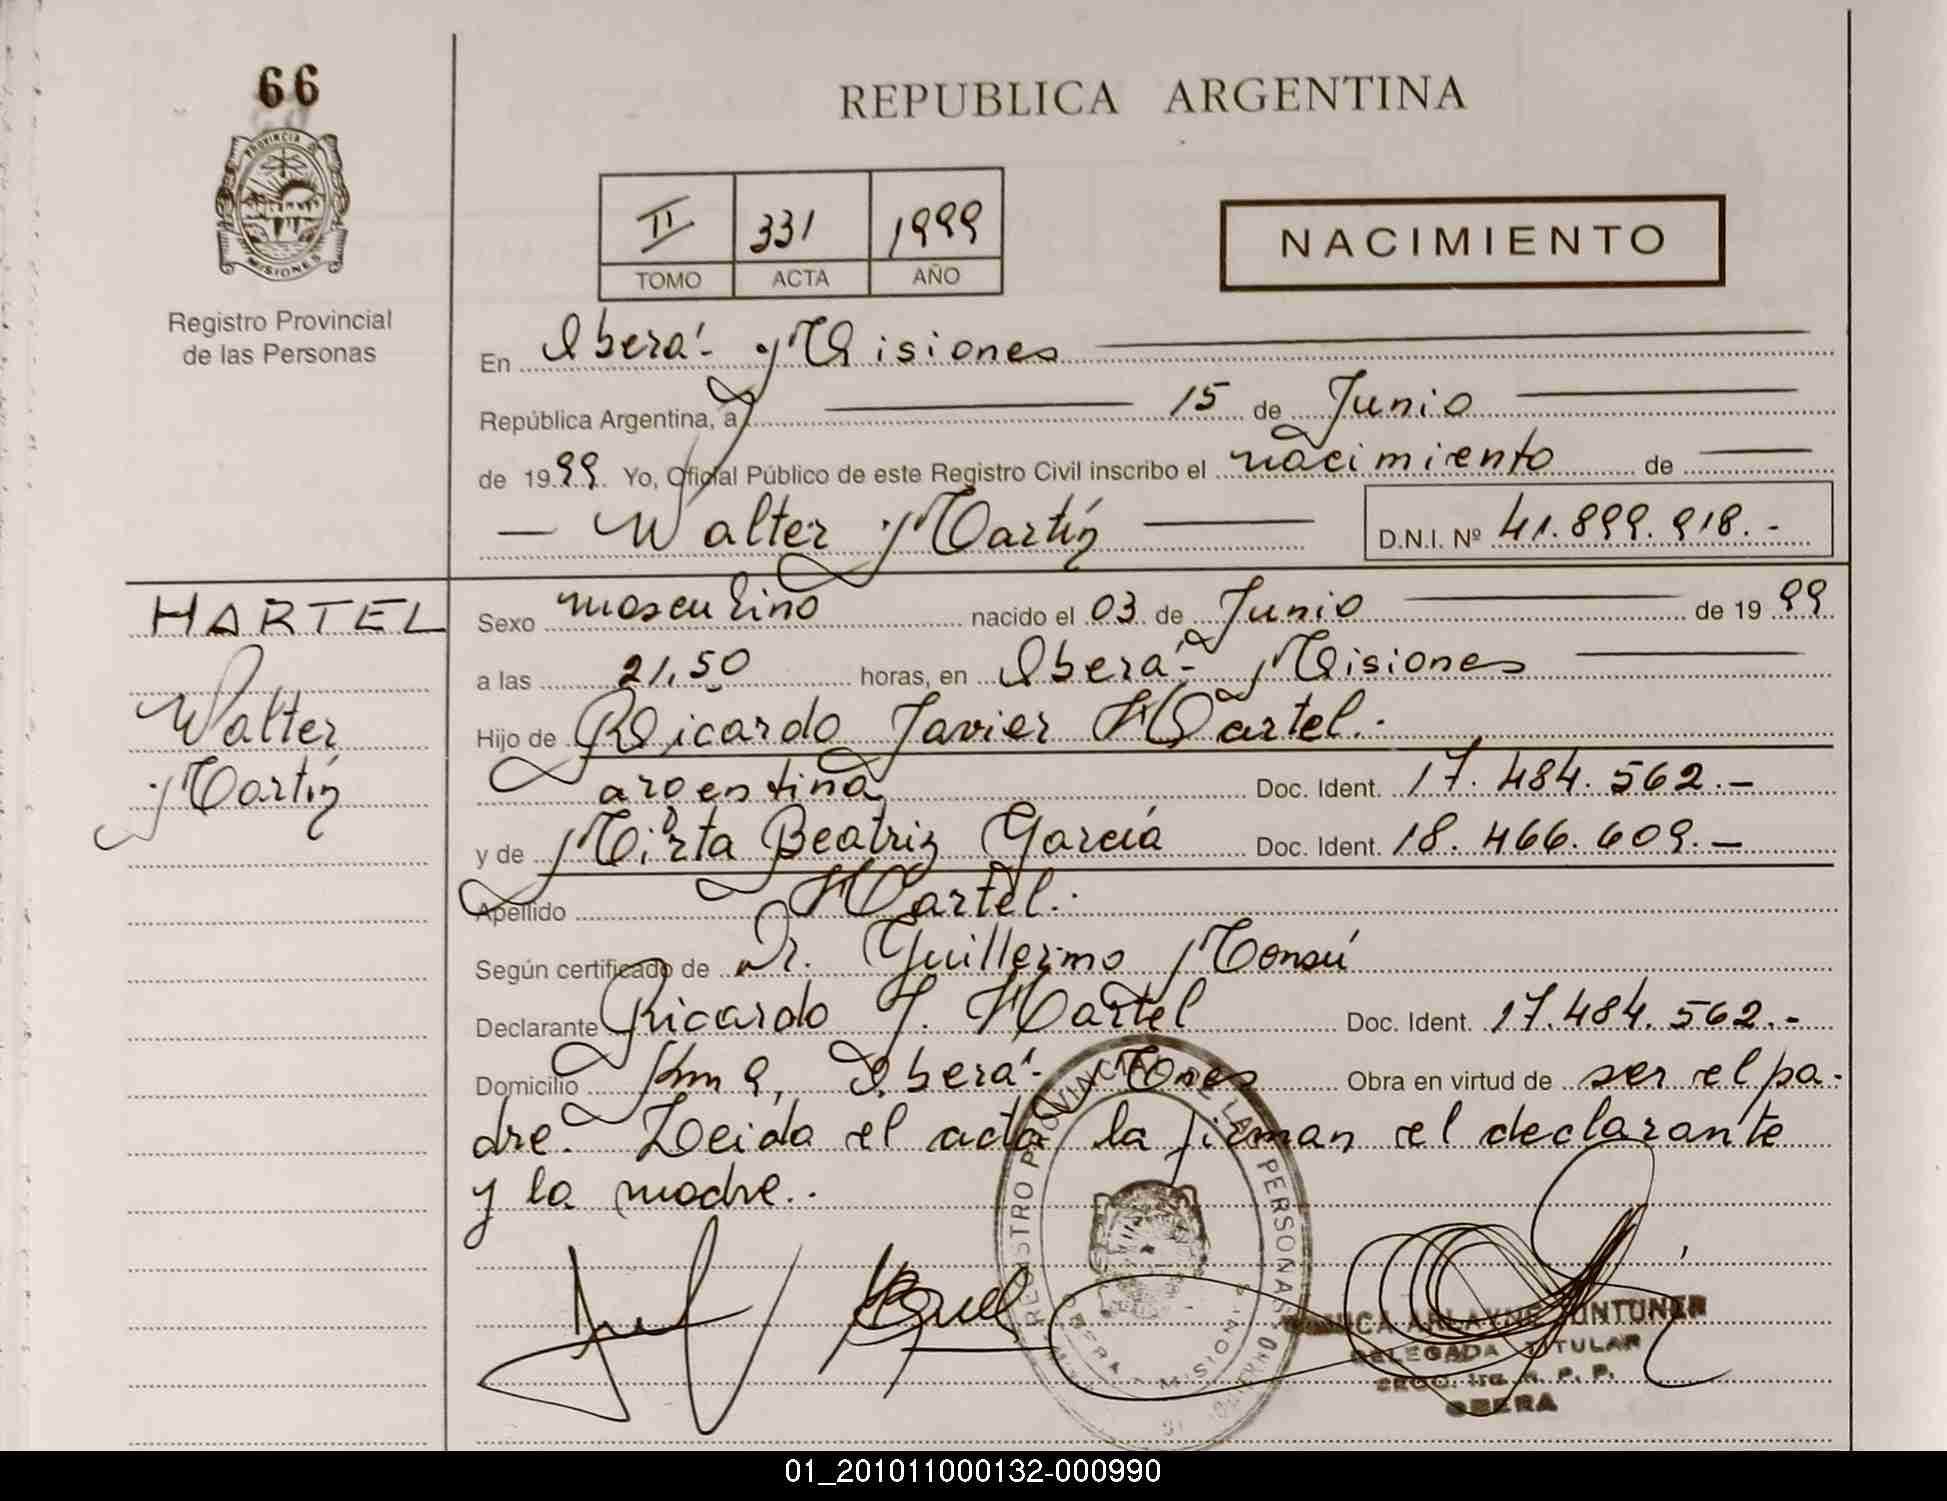 66
PROVINCIA DE
MISIONES
Registro Provincial
de las Personas
REPUBLICA ARGENTINA
II 331 1999
TOMO ACTA AÑO
NACIMIENTO
En Oberá - Misiones
República Argentina, a 15 de Junio
de 1999. Yo, Oficial Público de este Registro Civil inscribo el nacimiento de
Walter Martín D.N.I. Nº 41.899.918.-
HARTEL
Walter
Martín
Sexo masculino nacido el 03 de Junio de 1999
a las 21,50 horas, en Oberá - Misiones
Hijo de Ricardo Javier Hartel.
argentina Doc. Ident. 17.484.562.-
y de Mirta Beatriz García Doc. Ident. 18.466.609.-
Apellido Hartel.
Según certificado de Dr. Guillermo Monsú
Declarante Ricardo J. Hartel Doc. Ident. 17.484.562.-
Domicilio Km 9, Oberá - Mones Obra en virtud de ser el pa-
dre. Leida el acta la firman el declarante
y la madre..
REGISTRO PROVINCIAL DE LAS PERSONAS
OBERA - MISIONES
DELEGADA TITULAR
R. P. P.
OBERA
01_201011000132-000990